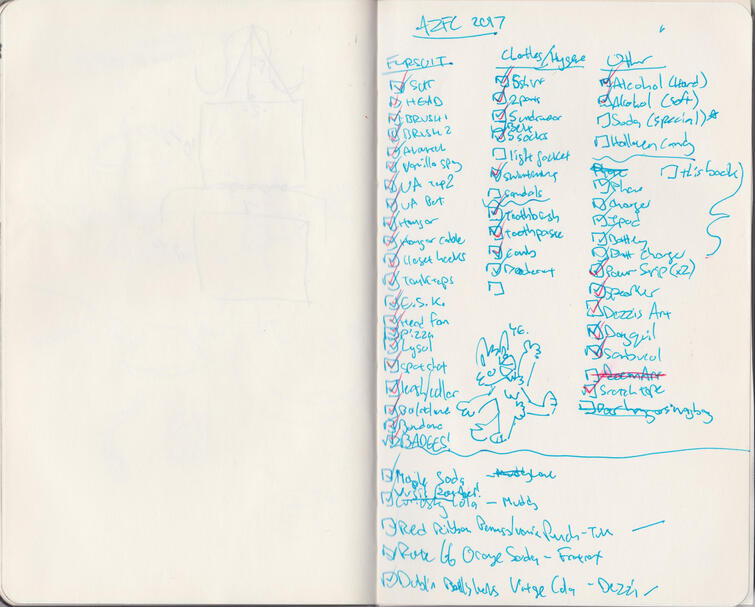 AZFC 2017
FURSUIT
SUIT
HEAD
BRUSH 1
BRUSH 2
Vanilla spy
UA top 2
UA Bot
Hangor
Hangor cable
Closet hooks
Tank tops
E.S.K.
Head fan
Pizza
Lysol
spot shot
leash/collar
Bandana
BADGES!
Clothes/Hygene
5 shirt
2 pants
5 underwear
Belt
5 socks
light jacket
sandals
Toothbrush
toothpaste
Comb
Deodorant
YE.
Other
Alcohol (Hard)
Alcohol (soft)
Soda (special)
Halloween candy
this book
Phone
Charger
Ipad
Battery
Batt Charger
Power Strip (x2)
Speaker
Dezzis Art
Dayquil
Room Art
Scotch tape
Maple Soda
Curiosity Cola - Muddy
Red Ribbon Pennsylvania Punch -
Route 66 Orange Soda -
Dublin Vintage Cola - Dezzis